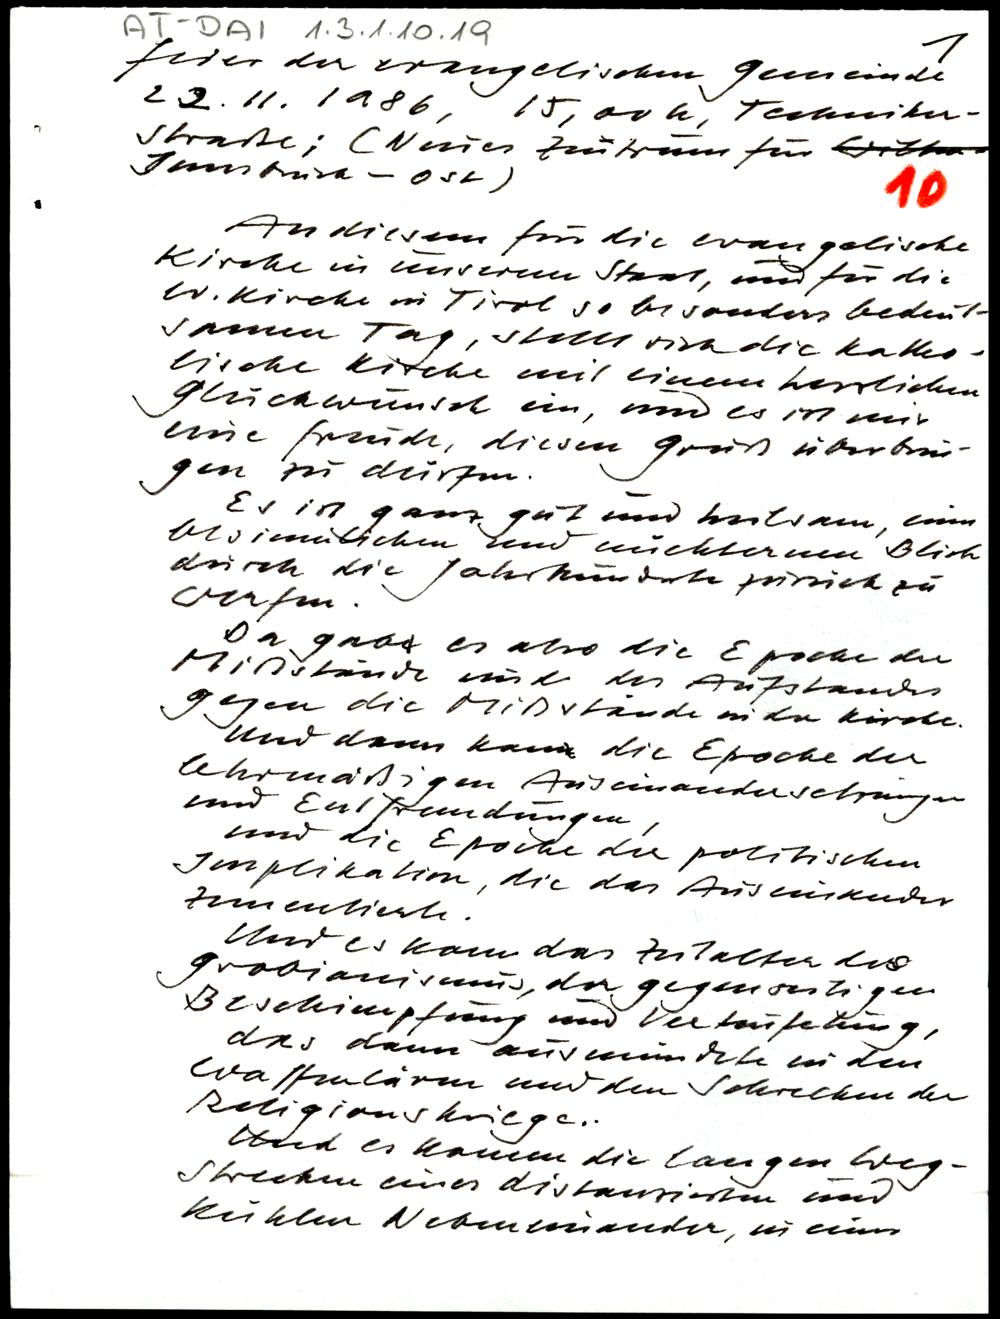 AT-DAI 1.3.1.10.19
1
Feier der evangelischen Gemeinde
22.11.1986, 15,00 h, Techniker-
straße; (Neues Zentrum für
Innsbruck-Ost)
10
An diesem für die evangelische
Kirche in unserem Staat, und für die
ev. Kirche in Tirol so besonders bedeut-
samen Tag, stellt sich die katho-
lische Kirche mit einem herzlichen
Glückwunsch ein, und es ist mir
eine Freude, diesen Gruß überbrin-
gen zu dürfen.
Es ist ganz gut und heilsam, einen
besinnlichen und nüchternen Blick
durch die Jahrhunderte zurück zu
werfen.
Da gab es also die Epoche der
Mißstände und des Aufstandes
gegen die Mißstände in der Kirche.
Und dann kam die Epoche der
lehrmäßigen Auseinandersetzungen
und Entfremdungen,
und die Epoche der politischen
Implikation, die das Auseinander
zementierte.
Und es kam das Zeitalter des
Grobianismus, der gegenseitigen
Beschimpfung und Verteufelung,
das dann ausmündete in den
Waffenlärm und den Schrecken der
Religionskriege..
Und es kamen die langen Weg-
strecken eines distanzierten und
kühlen Nebeneinander, in einer